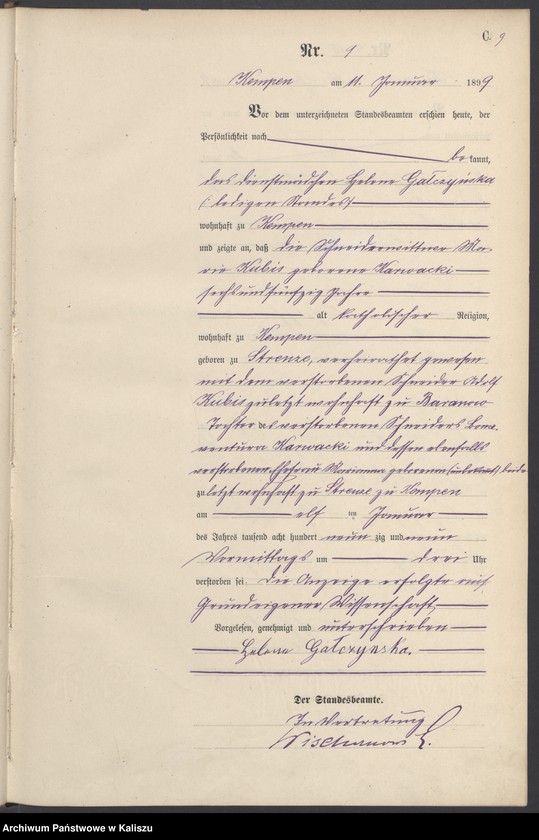 C. 9
Nr. 9
Kempen am 11. Januar 1899
Vor dem unterzeichneten Standesbeamten erschien heute, der
Persönlichkeit nach
be kannt,
das Dienstmädchen Helene Gałczyńska
(ledigen Standes)
wohnhaft zu Kempen
und zeigte an, daß die Schneiderwittwe Ma-
rie Kubis geborene Karwacki
sechsundfünfzig Jahre
alt katholischer Religion,
wohnhaft zu Kempen
geboren zu Strenze, verheirathet gewesen
mit dem verstorbenen Schneider Adolf
Kubis zuletzt wohnhaft zu Baranow
Tochter des verstorbenen Schneiders Bona-
ventura Karwacki und dessen ebenfalls
verstorbenen Ehefrau Marianna geborenen (unbekannt) beide
zuletzt wohnhaft zu Strenze zu Kempen
am elf ten Januar
des Jahres tausend acht hundert neun zig und neun
Vormittags um drei Uhr
verstorben sei. Die Anzeige erfolgte aus
Grund eigener Wissenschaft,
Vorgelesen, genehmigt und unterschrieben
Helena Gałczynska.
Der Standesbeamte.
In Vertretung
Archiwum Państwowe w Kaliszu